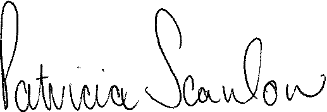 Patricia Scanlon